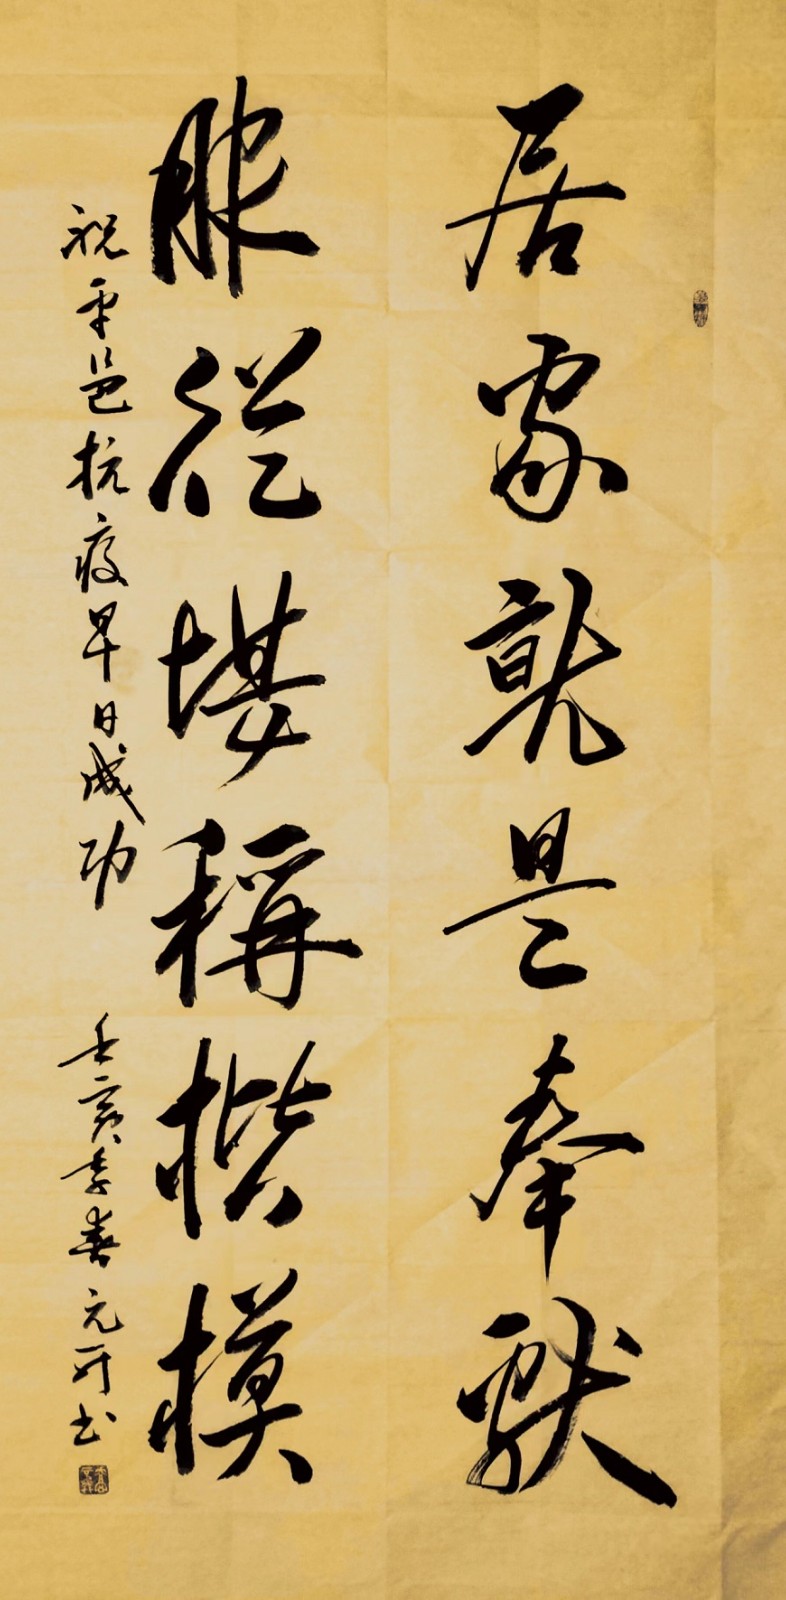 居家就是奉獻
服從堪稱楷模
祝平邑抗疫早日成功
壬寅季春元開书